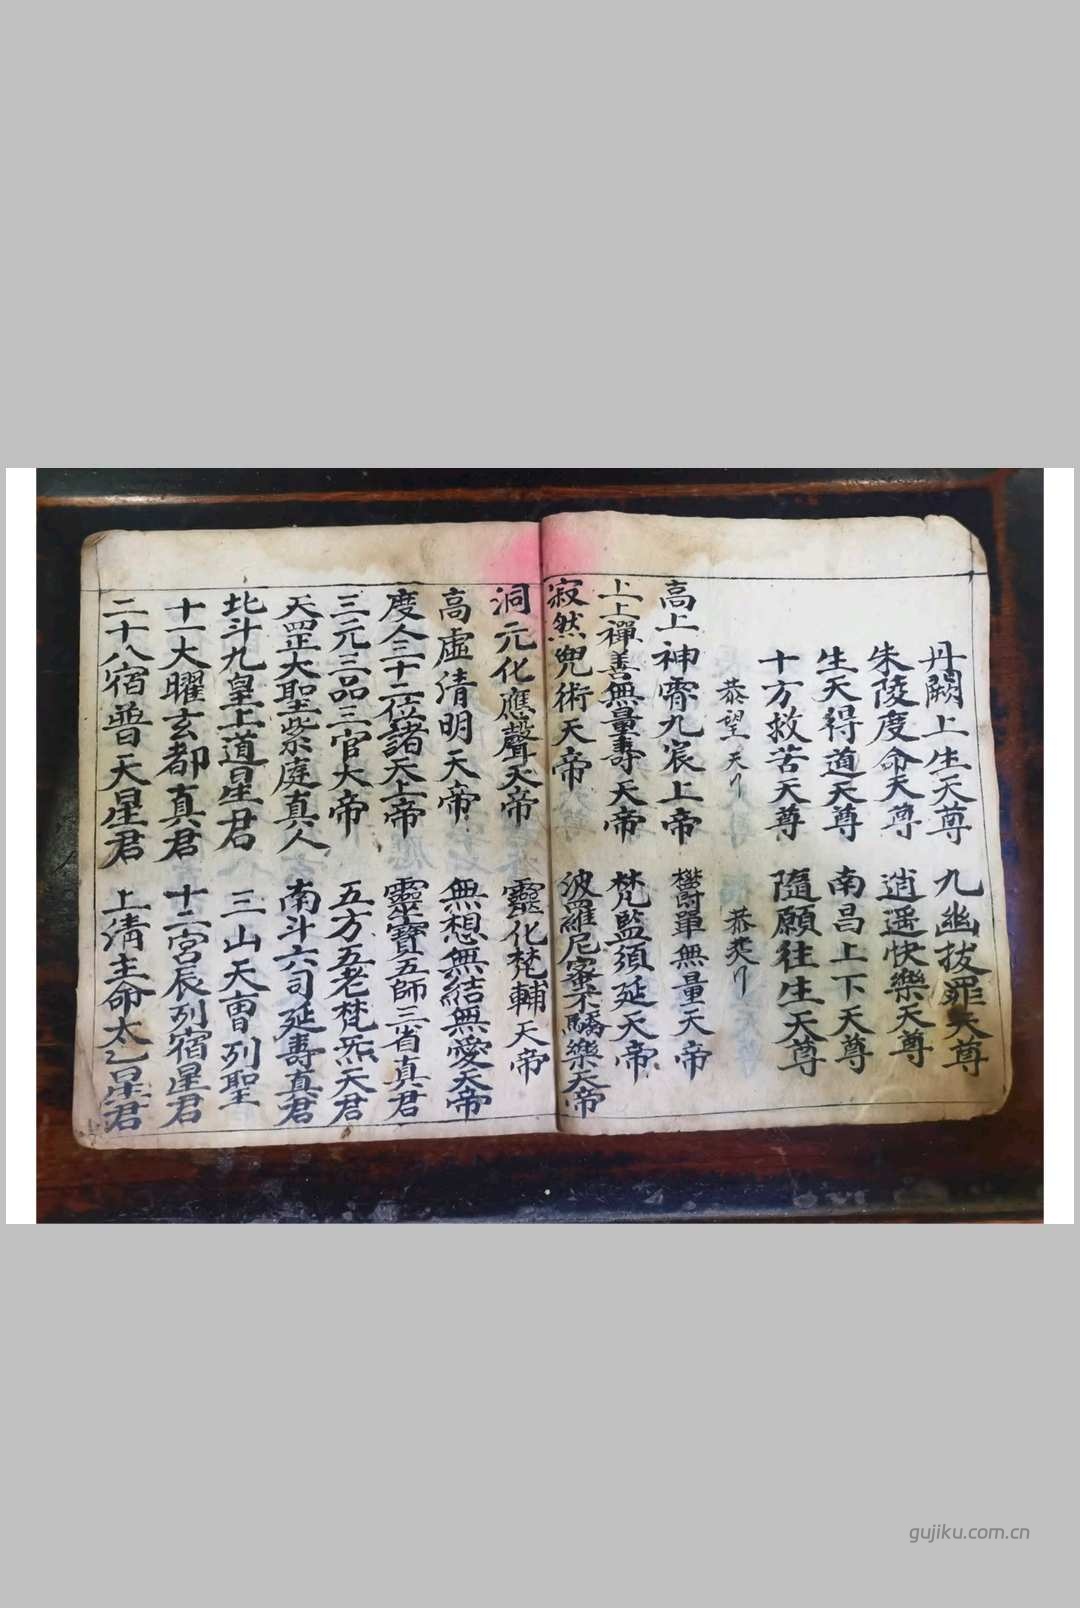 丹闕上生天尊　九幽拔罪天尊
朱陵度命天尊　逍遥快樂天尊
生天得道天尊　南昌上下天尊
十方救苦天尊　隨願往生天尊
恭望天　恭
高上神霄九宸上帝　欝單無量天帝
上上禪善無量壽天帝　梵監須延天帝
寂然兜術天帝　波羅尼蜜不驕樂天帝
洞元化應聲天帝　靈化梵輔天帝
高虛清明天帝　無想無結無愛天帝
度令三十二位諸天上帝　靈寶五師三省真君
三元三品三官大帝　五方五老梵炁天君
天罡大聖紫庭真人　南斗六司延壽真君
北斗九皇上道星君　三山天曹列聖
十一大曜玄都真君　十二宮辰列宿星君
二十八宿普天星君　上清主命太乙星君
gujiku.com.cn